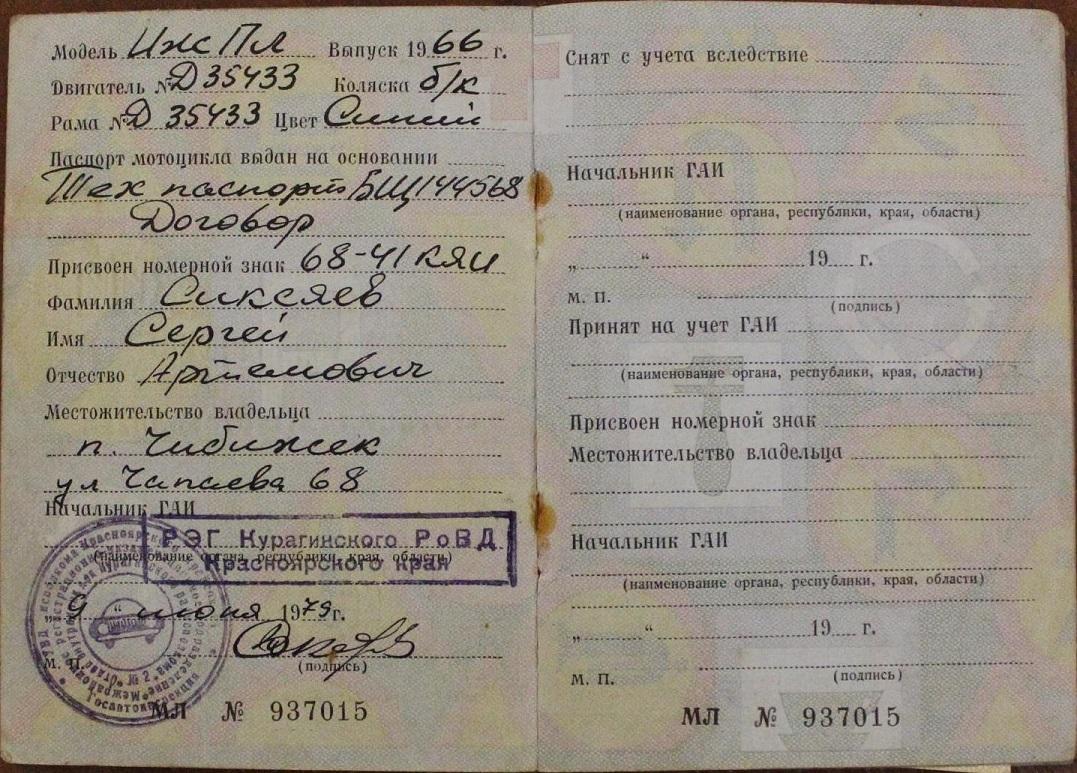 Модель Иж Пл Выпуск 1966 г.
Двигатель № Д 35433 Коляска б/к
Рама № Д 35433 Цвет Синий
Паспорт мотоцикла выдан на основании
Тех паспорт БЩ 144568
Договор
Присвоен номерной знак 68-41 КЯИ
Фамилия Сиксяев
Имя Сергей
Отчество Артемович
Местожительство владельца
п. Чибижек
ул Чапаева 68
Начальник ГАИ
РЭГ Курагинского РоВД
Красноярского края
(наименование органа, республики, края, области)
„9“ июня 1979 г.
(подпись)
М. П.
МЛ № 937015
Снят с учета вследствие
Начальник ГАИ
(наименование органа, республики, края, области)
„ “ 19 г.
М. П.
(подпись)
Принят на учет ГАИ
(наименование органа, республики, края, области)
Присвоен номерной знак
Местожительство владельца
Начальник ГАИ
(наименование органа, республики, края, области)
„ “ 19 г.
М. П.
(подпись)
МЛ № 937015